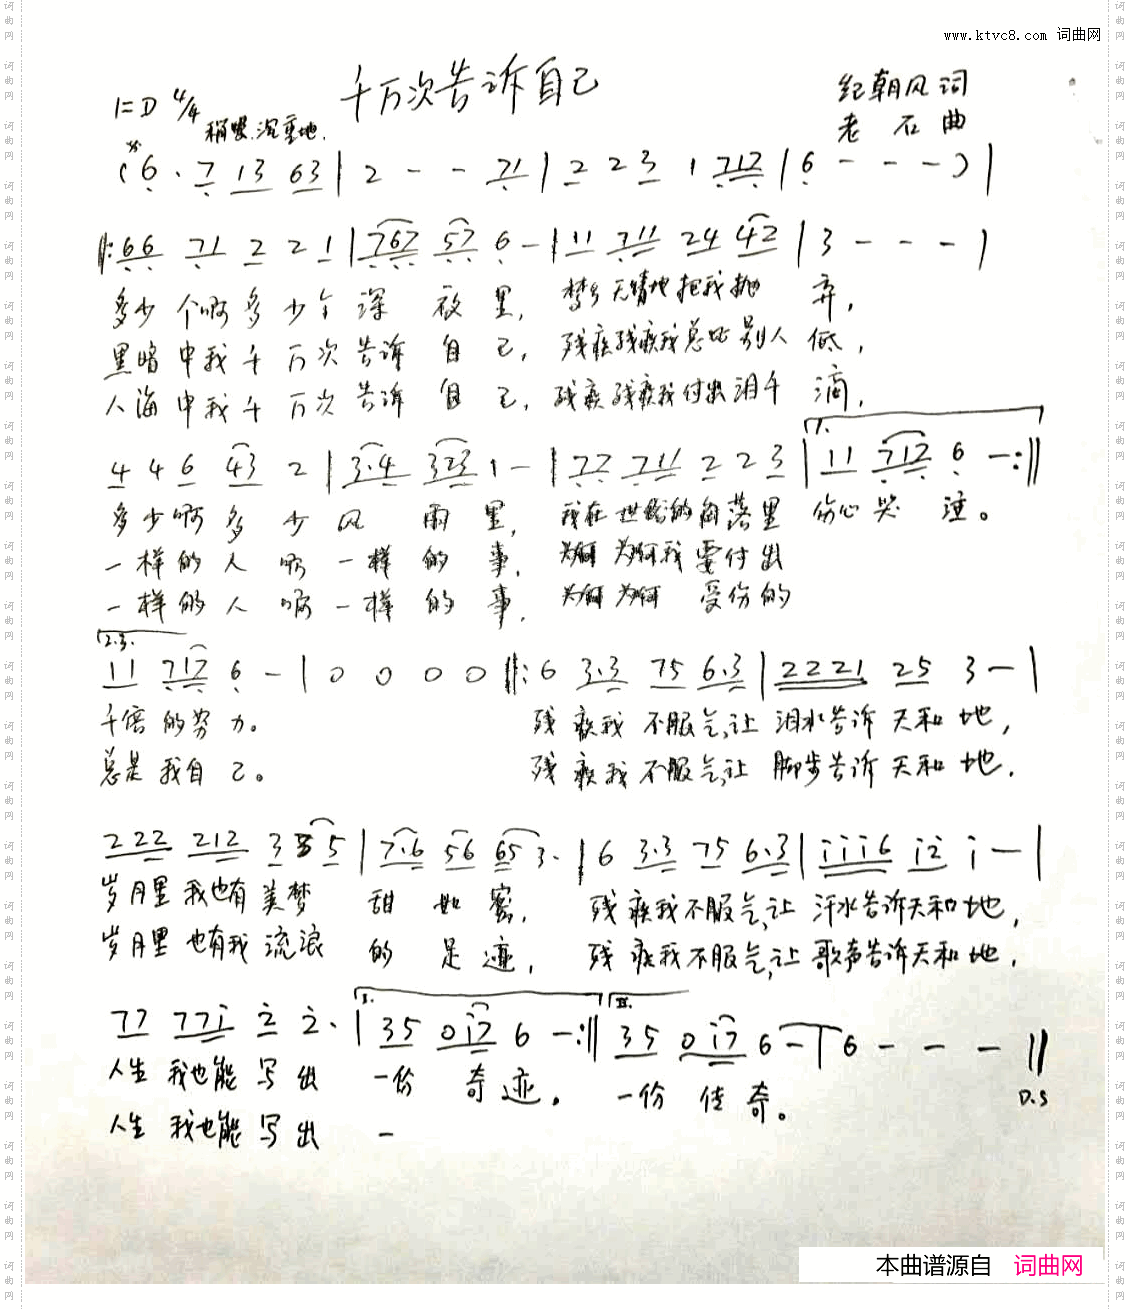 www.ktvc8.com 词曲网
千万次告诉自己
1=D 4/4
稍慢 沉重地.
纪朝风 词
老 石 曲
(6 · 7 13 63 | 2 - - 71 | 2 2 3 1 712 | 6 - - - ) |
|: 66 71 2 2 1 | 767 57 6 - | 11 711 24 42 | 3 - - - |
多少 个啊 多少个 深 夜 里, 梦乡 无情地 把我 抛 弃,
黑暗中我千万次告诉 自己, 残疾残疾我总比别人低,
人海中我千万次告诉 自己, 残疾残疾我付出泪千滴,
4 4 6 43 2 | 3·4 323 1 - | 77 711 2 2 3 | 1. 11 712 6 - :||
多少啊多少风雨里, 我在世俗的角落里 伤心哭泣。
一样的人啊一样的事, 为何为何我要付出
一样的人啊一样的事, 为何为何 受伤的
2.3. 11 712 6 - | 0 0 0 0 ||: 6 3·3 75 6·3 | 2221 25 3 - |
千倍的努力。 残疾我不服气,让泪水告诉天和地,
总是我自己。 残疾我不服气,让脚步告诉天和地.
222 212 3 5 5 | 7·6 56 65 3· | 6 3·3 75 6·3 | i i i 6 i2 i - |
岁月里我也有美梦甜如蜜, 残疾我不服气,让汗水告诉天和地,
岁月里也有我流浪的足迹, 残疾我不服气,让歌声告诉天和地.
77 77i 2 2· | I. 35 0i7 6 - :|| II. 35 0i7 6 - | 6 - - - ||
人生我也能写出一份奇迹。 一份传奇。
D.S
人生我也能写出一
本曲谱源自 词曲网